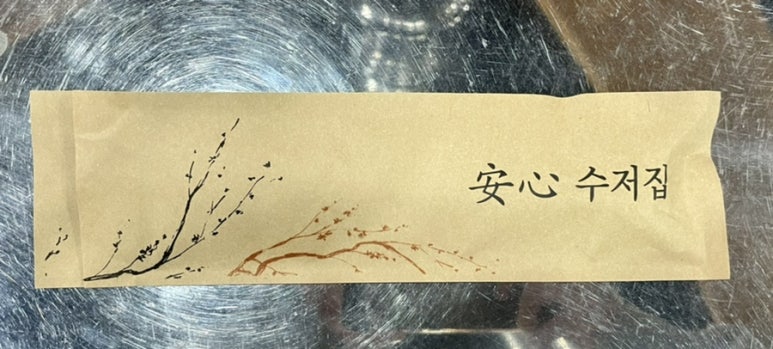 安心 수저집